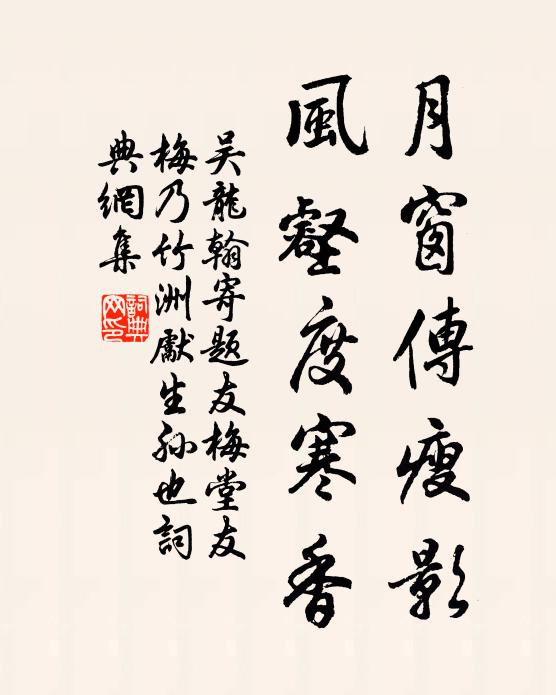 月窗傳瘦影
風壑度寒香
吴龍翰寄題友梅堂友
梅乃竹洲獻生孫也詞
典網集
詞典
网印